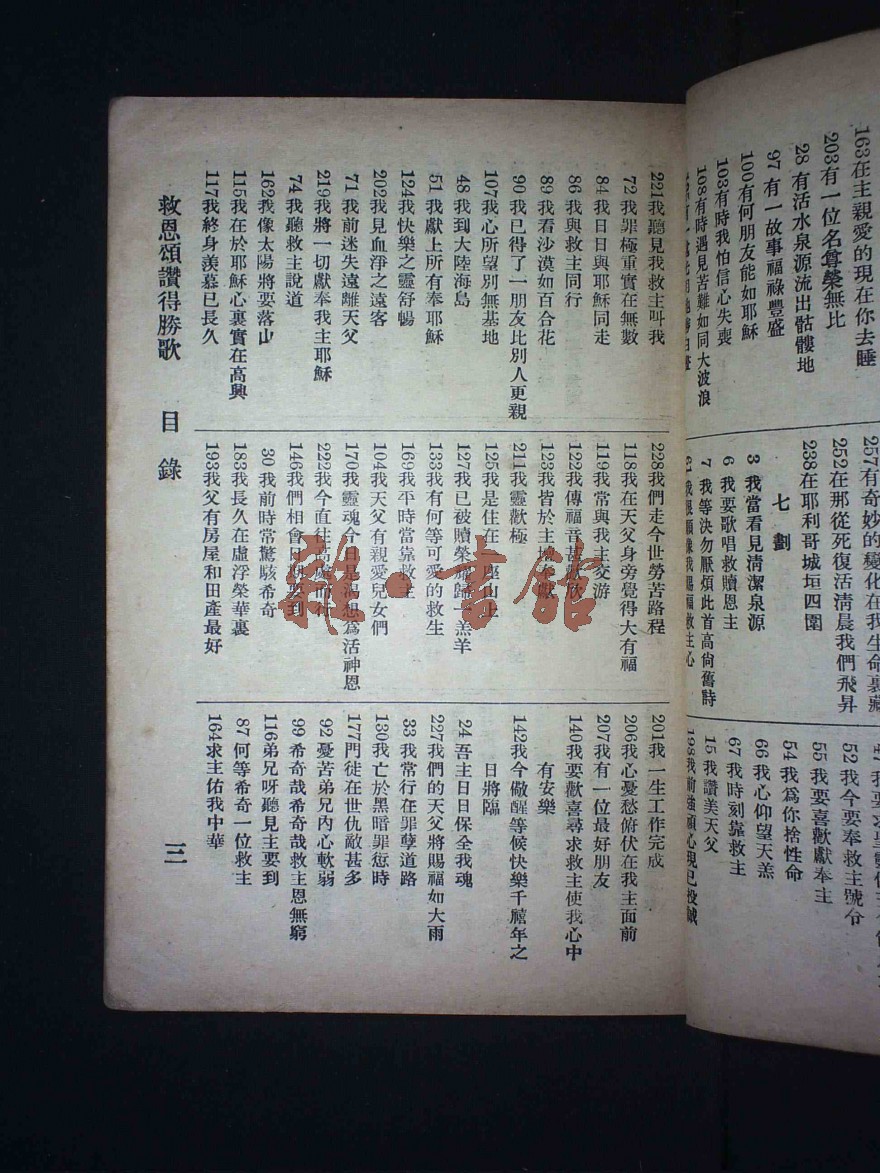 163在主親愛的現在你去睡
203有一位名尊榮無比
28 有活水泉源流出骷髏地
97 有一故事福祿豐盛
100有何朋友能如耶穌
103有時我怕信心失喪
108有時遇見苦難如同大波浪
257有奇妙的變化在我生命裏藏
252在那從死復活淸晨我們飛昇
238在耶利哥城垣四圍
七劃
3 我當看見淸潔泉源
6 我要歌唱救贖恩主
7 我等決勿厭煩此首高尙舊詩
52 我今要奉救主號令
55 我要喜歡獻奉主
54 我爲你捨性命
66 我心仰望天羔
67 我時刻靠救主
15 我讚美天父
198我前强頑心現已投誠
221我聽見我救主叫我
72 我罪極重實在無數
84 我日日與耶穌同走
86 我與救主同行
89 我看沙漠如百合花
90 我已得了一朋友比別人更親
107我心所望別無基地
48 我到大陸海島
51 我獻上所有奉耶穌
124我快樂之靈舒暢
202我見血淨之遠客
71 我前迷失遠離天父
219我將一切獻奉我主耶穌
74 我聽救主說道
162我像太陽將要落山
115我在於耶穌心裏實在高興
117我終身羡慕已長久
228我們走今世勞苦路程
118我在天父身旁覺得大有福
119我常與我主交游
122我傳福音甚歡欣
123我皆於主壇上獻
211我靈歡極
125我是住在一座山上
127我已被贖榮耀歸一羔羊
133我有何等可愛的救生
169我平時當靠救主
104我天父有親愛兒女們
170我靈魂今日是渴想爲活神恩
222我今直往高處而行
146我們相會日期要到
30 我前時常驚駭希奇
183我長久在虛浮榮華裏
193我父有房屋和田產最好
201我一生工作完成
206我心憂愁俯伏在我主面前
207我有一位最好朋友
140我要歡喜尋求救主使我心中
有安樂
142我今儆醒等候快樂千禧年之
日將臨
24 吾主日日保全我魂
227我們的天父將賜福如大雨
33 我常行在罪孽道路
130我亡於黑暗罪愆時
177門徒在世仇敵甚多
92 憂苦弟兄內心軟弱
99 希奇哉希奇哉救主恩無窮
116弟兄呀聽見主要到
87 何等希奇一位救主
164求主佑我中華
救恩頌讚得勝歌 目錄 三
雜·書館